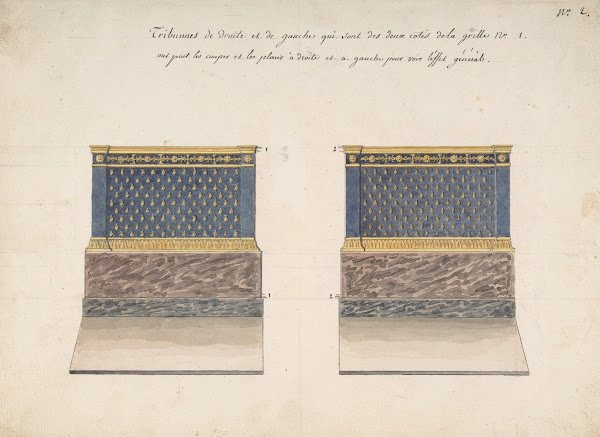 No. 2.
Tribunes de droite et de gauche qui sont des deux côtés de la grille No. 1.
on peut les couper et les placer à droite et a gauche pour voir l'effet générale.
1
2
1
2